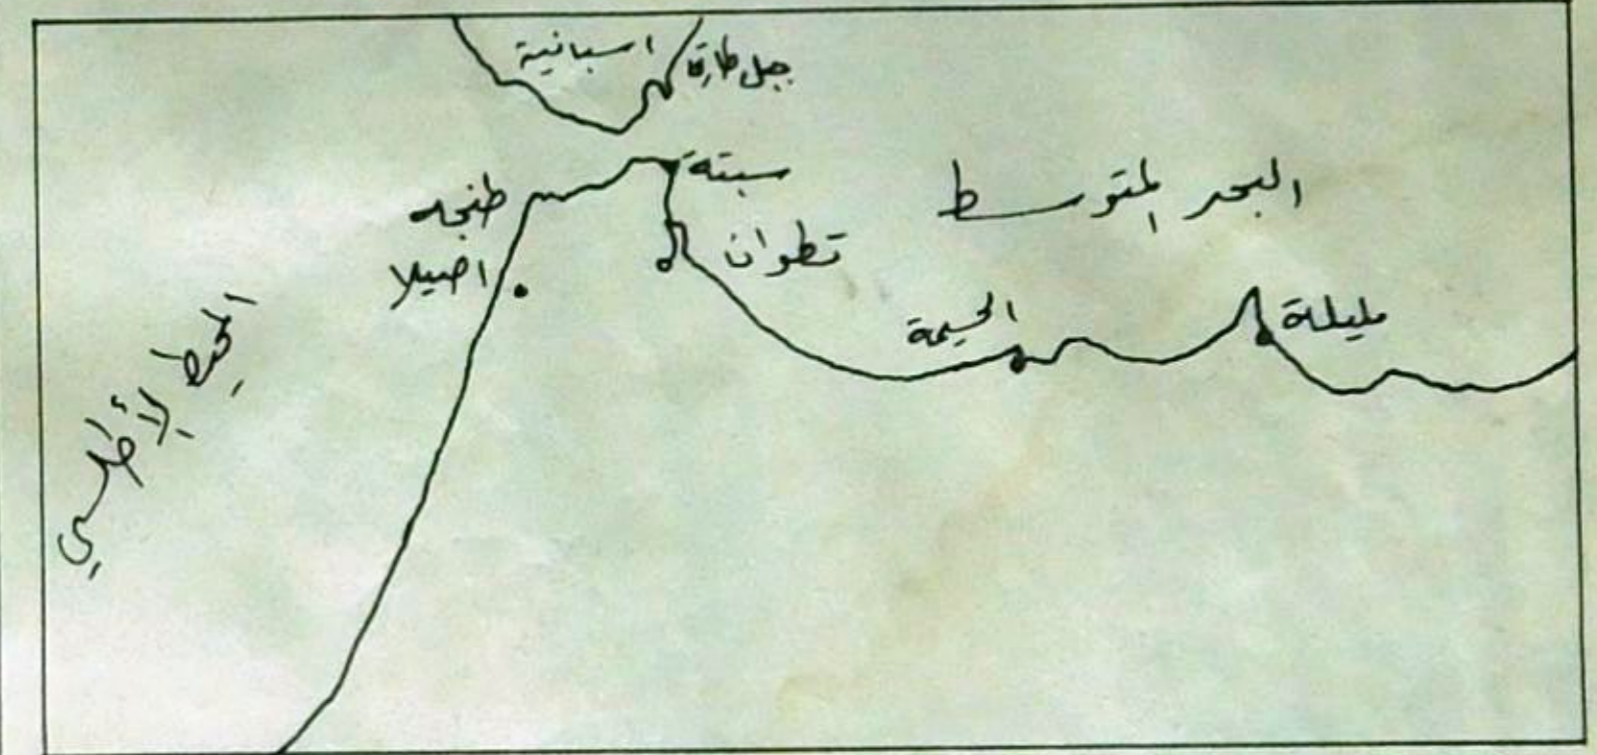 اسبانية
جبل طارق
سبتة
طنجه
البحر المتوسط
تطوان
اصيلا
الحسيمة
مليلة
المحيط الأطلسي